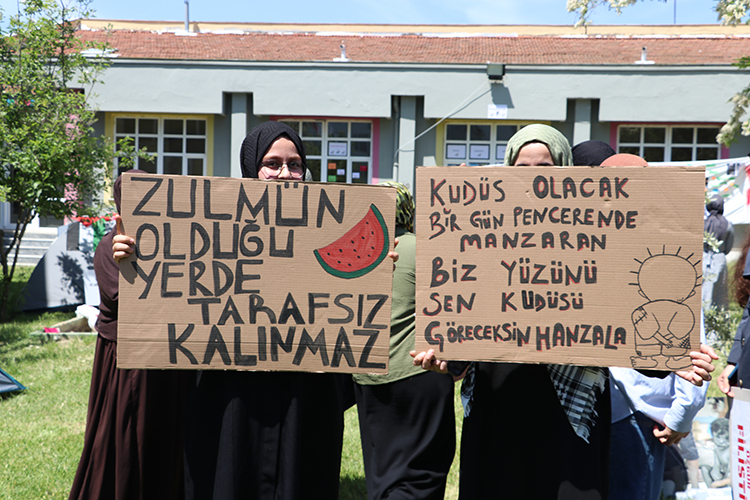 ZULMÜN
OLDUĞU
YERDE
TARAFSIZ
KALINMAZ
KUDÜS OLACAK
BİR GÜN PENCERENDE
MANZARAN
BİZ YÜZÜNÜ
SEN KUDÜSÜ
GÖRECEKSİN HANZALA